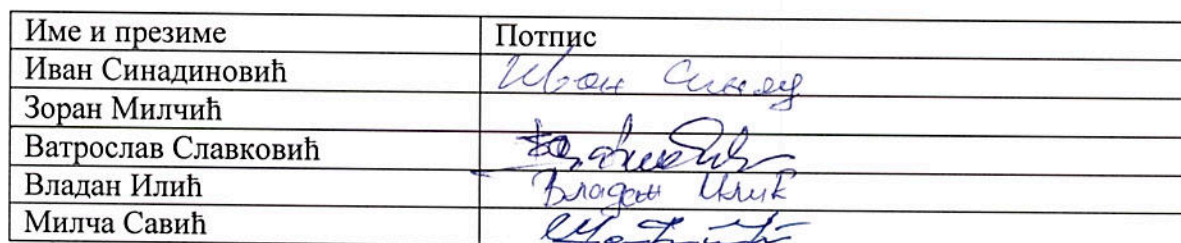 Име и презиме Потпис
Иван Синадиновић Иван Синад
Зоран Милчић
Ватрослав Славковић
Владан Илић Владан Илић
Милча Савић